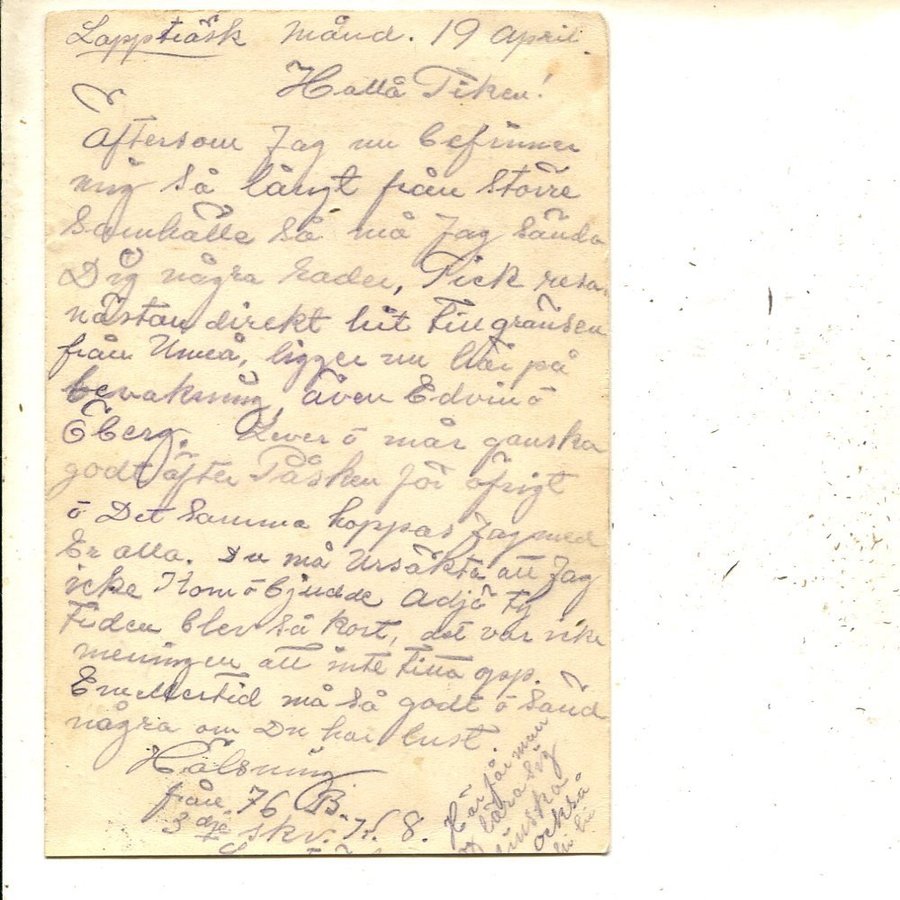 Lappträsk Månd. 19 April.
Hallå Tiken!
Äftersom Jag nu befinner
mig så långt från större
Samhälle så må Jag sända
Dig några rader, Fick resa
nästan direkt hit till gränsen
från Umeå, ligger nu här på
bevakning, även Edvin ö
Öberg. Lever ö mår ganska
godt äfter Påsken för öfrigt
ö Det samma hoppas Jag med
Er alla. Du må Ursäkta att Jag
icke Kom ö bjudde Adjö ty
Tiden blev så kort, det var icke
meningen att inte titta opp.
Emellertid må så godt ö Sänd
några om Du har lust.
Hälsning
från 76 B.
3 dje skv. K 8.
Här får man
lära sig
finska
också